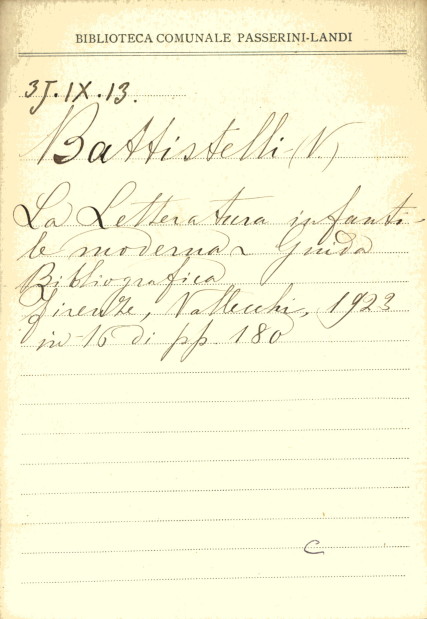 BIBLIOTECA COMUNALE PASSERINI-LANDI
3J.IX.13.
Battistelli (V.)
La Letteratura infanti-
le moderna Guida
Bibliografica
Firenze, Vallecchi, 1923
in-16 di pp. 180
C